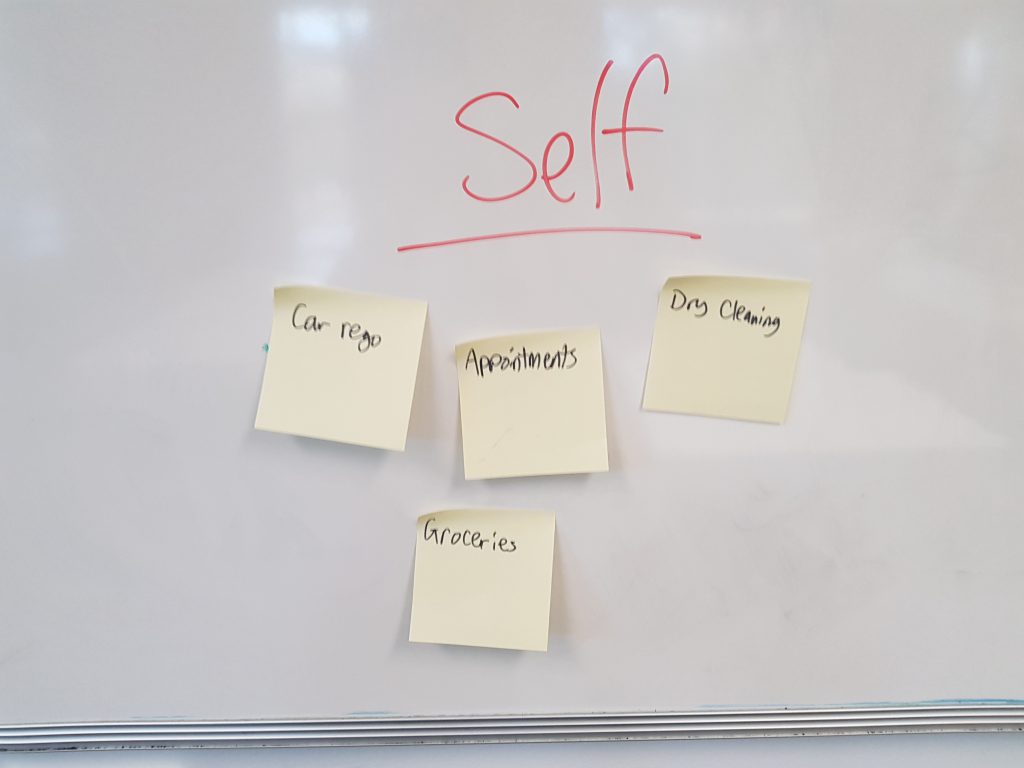 Self
Car rego
Appointments
Dry Cleaning
Groceries